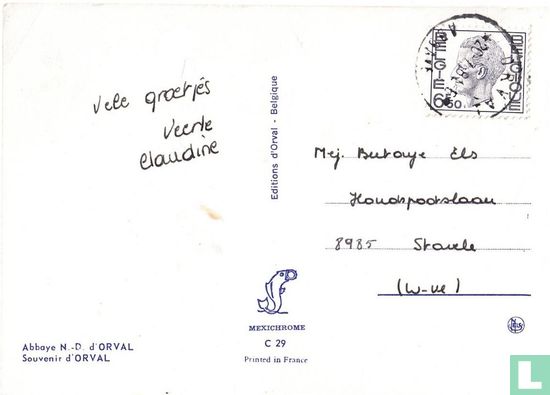 Vele groetjes
Veerle
Claudine
Editions d'Orval - Belgique
BELGIE
BELGIQUE
6,50
ORVAL
Mej. Butaye Els
8985 Stavele
(W-Vl)
MEXICHROME
C 29
Printed in France
Abbaye N.-D. d'ORVAL
Souvenir d'ORVAL
L